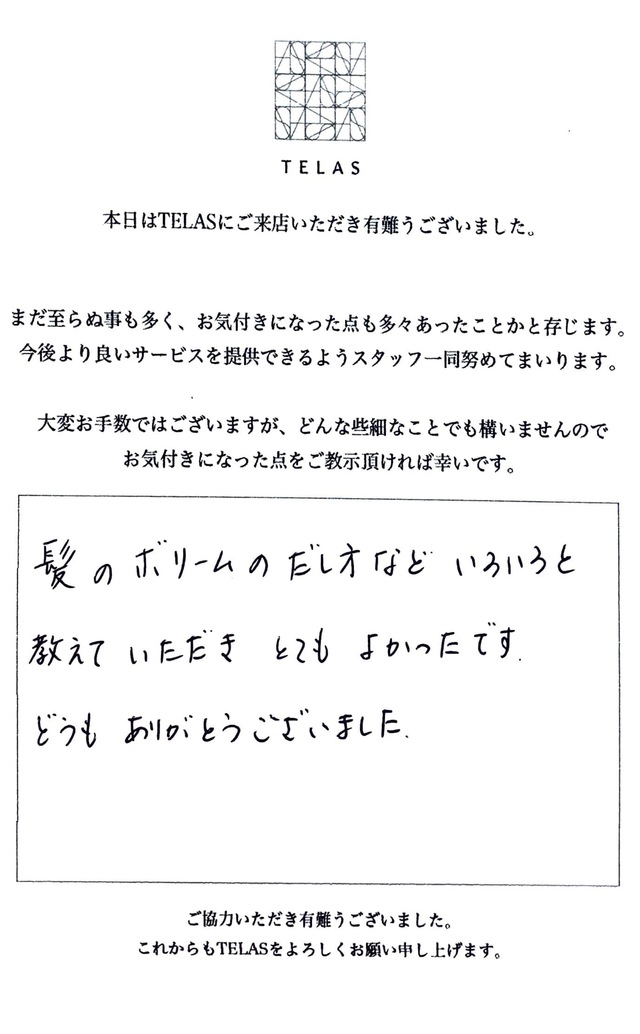 TELAS
本日はTELASにご来店いただき有難うございました。
まだ至らぬ事も多く、お気付きになった点も多々あったことかと存じます。
今後より良いサービスを提供できるようスタッフ一同努めてまいります。
大変お手数ではございますが、どんな些細なことでも構いませんので
お気付きになった点をご教示頂ければ幸いです。
髪のボリームのだし才など いろいろと
教えて いただき とても よかったです.
どうも ありがとうございました.
ご協力いただき有難うございました。
これからもTELASをよろしくお願い申し上げます。